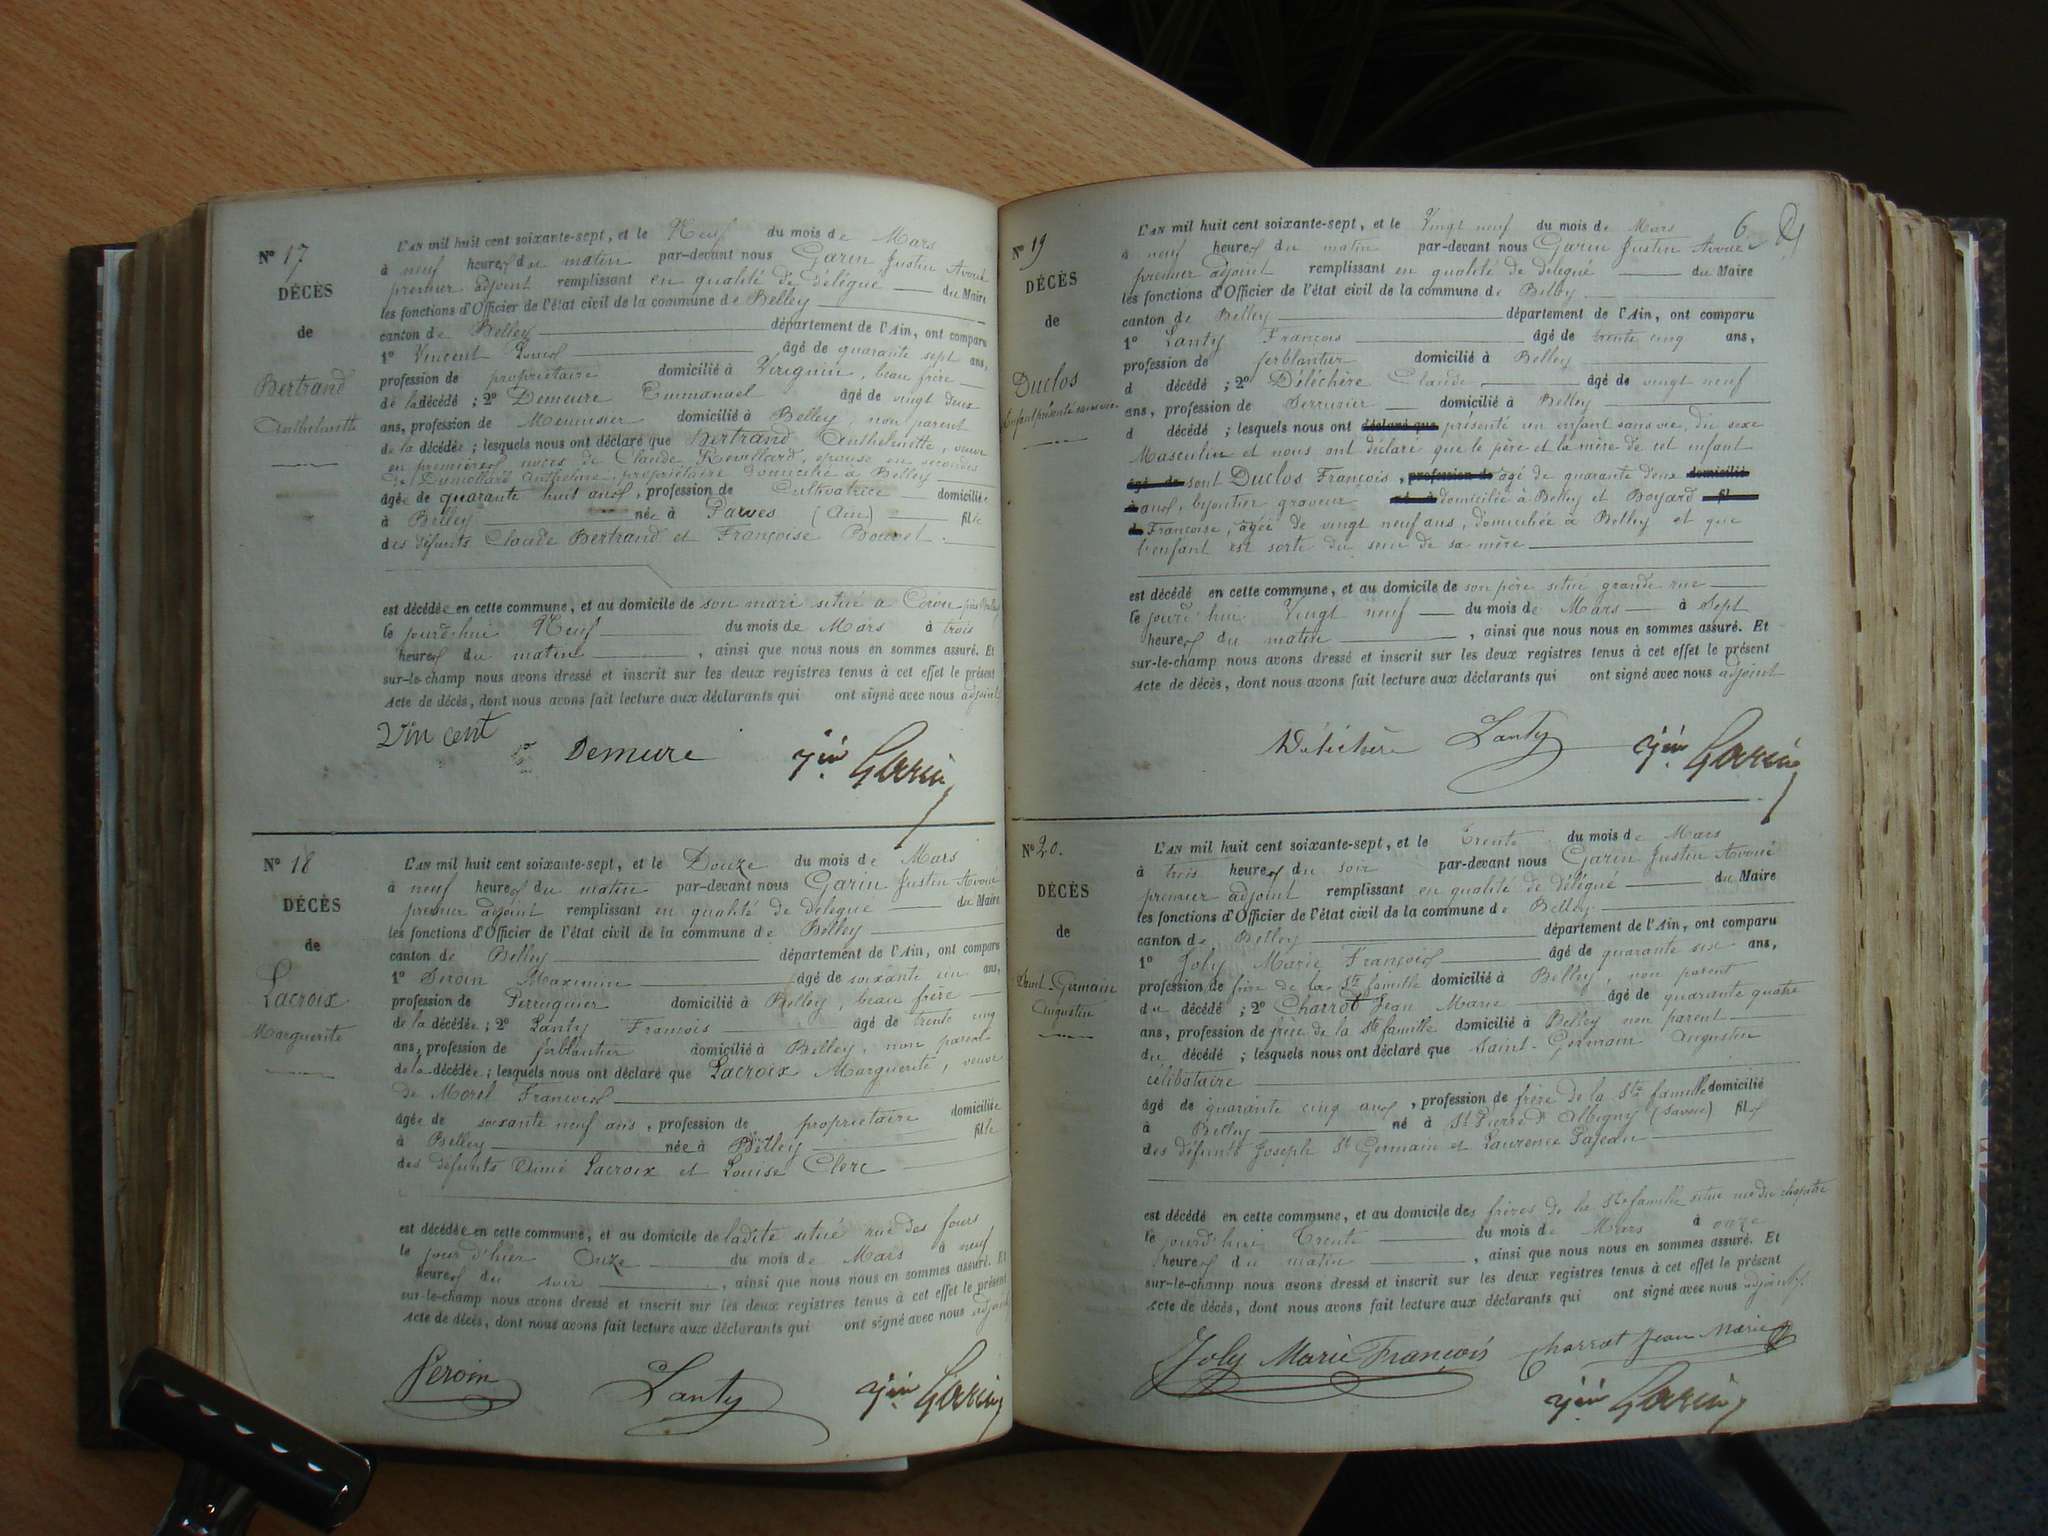 N° 17
DÉCÈS
de
Bertrand
Anthelmette
L'AN mil huit cent soixante-sept, et le Neuf du mois de Mars
à neuf heures du matin par-devant nous Garin Justin Avoué
premier adjoint remplissant en qualité de délégué du Maire
les fonctions d'Officier de l'état civil de la commune de Belley
canton de Belley département de l'Ain, ont comparu
1° Vincent Louis âgé de quarante sept ans,
profession de propriétaire domicilié à Virignin, beau frère
de la décédé ; 2° Demeure Emmanuel âgé de vingt deux
ans, profession de Menuisier domicilié à Belley, non parent
de la décédée ; lesquels nous ont déclaré que Bertrand Anthelmette, veuve
en premières noces de Claude Revillard, épouse en secondes
de Dumollard Anthelme, propriétaire domicilié à Belley
âgée de quarante huit ans, profession de Cultivatrice domiciliée
à Belley née à Parves (Ain) fille
des défunts Claude Bertrand et Françoise Bouvet.
est décédée en cette commune, et au domicile de son mari situé a Coron
le jourd'hui Neuf du mois de Mars à trois
heures du matin, ainsi que nous nous en sommes assuré. Et
sur-le-champ nous avons dressé et inscrit sur les deux registres tenus à cet effet le présent
Acte de décès, dont nous avons fait lecture aux déclarants qui ont signé avec nous adjoint
Vincent Demeure Garin
N° 18
DÉCÈS
de
Lacroix
Marguerite
L'AN mil huit cent soixante-sept, et le Douze du mois de Mars
à neuf heures du matin par-devant nous Garin Justin Avoué
premier adjoint remplissant en qualité de délégué du Maire
les fonctions d'Officier de l'état civil de la commune de Belley
canton de Belley département de l'Ain, ont comparu
1° Peroin Maximin âgé de soixante cinq ans,
profession de Perruquier domicilié à Belley, beau frère
de la décédée ; 2° Lanty François âgé de trente cinq
ans, profession de ferblantier domicilié à Belley, non parent
de la décédée ; lesquels nous ont déclaré que Lacroix Marguerite, veuve
de Morel François
âgée de soixante neuf ans, profession de propriétaire domiciliée
à Belley née à Belley fille
des défunts Aimé Lacroix et Louise Clerc
est décédée en cette commune, et au domicile de ladite situé rue des fours
le jour d'hier Onze du mois de Mars à neuf
heures du soir, ainsi que nous nous en sommes assuré. Et
sur-le-champ nous avons dressé et inscrit sur les deux registres tenus à cet effet le présent
Acte de décès, dont nous avons fait lecture aux déclarants qui ont signé avec nous adjoint
Peroin Lanty Garin
6
N° 19
DÉCÈS
de
Duclos
Enfant présenté sans vie
L'AN mil huit cent soixante-sept, et le Vingt neuf du mois de Mars
à neuf heures du matin par-devant nous Garin Justin Avoué
premier adjoint remplissant en qualité de délégué du Maire
les fonctions d'Officier de l'état civil de la commune de Belley
canton de Belley département de l'Ain, ont comparu
1° Lanty François âgé de trente cinq ans,
profession de ferblantier domicilié à Belley
d décédé ; 2° Déléchère Claude âgé de vingt neuf
ans, profession de Serrurier domicilié à Belley
d décédé ; lesquels nous ont déclaré que présenté un enfant sans vie, du sexe
Masculin et nous ont déclaré que le père et la mère de cet enfant
âgé de sont Duclos François, profession de âgé de quarante deux domicilié
à ans, bijoutier graveur né à domicilié à Belley et Boyard fil
de Françoise, âgée de vingt neuf ans, domiciliée à Belley et que
l'enfant est sorti du sein de sa mère
est décédé en cette commune, et au domicile de son père situé grande rue
le jourd'hui Vingt neuf du mois de Mars à Sept
heures du matin, ainsi que nous nous en sommes assuré. Et
sur-le-champ nous avons dressé et inscrit sur les deux registres tenus à cet effet le présent
Acte de décès, dont nous avons fait lecture aux déclarants qui ont signé avec nous adjoint
Déléchère Lanty Garin
N° 20.
DÉCÈS
de
Saint-Germain
Augustin
L'AN mil huit cent soixante-sept, et le Trente du mois de Mars
à trois heures du soir par-devant nous Garin Justin Avoué
premier adjoint remplissant en qualité de délégué du Maire
les fonctions d'Officier de l'état civil de la commune de Belley
canton de Belley département de l'Ain, ont comparu
1° Joly Marie François âgé de quarante six ans,
profession de frère de la Ste famille domicilié à Belley, non parent
du décédé ; 2° Charrot Jean Marie âgé de quarante quatre
ans, profession de frère de la Ste famille domicilié à Belley non parent
du décédé ; lesquels nous ont déclaré que Saint-Germain Augustin
célibataire
âgé de quarante cinq ans, profession de frère de la Ste famille domicilié
à Belley né à St Pierre d'Albigny (Savoie) fils
des défunts Joseph St Germain et Laurence Pajean
est décédé en cette commune, et au domicile des frères de la Ste famille situé rue du chapitre
le jourd'hui Trente du mois de Mars à onze
heures du matin, ainsi que nous nous en sommes assuré. Et
sur-le-champ nous avons dressé et inscrit sur les deux registres tenus à cet effet le présent
Acte de décès, dont nous avons fait lecture aux déclarants qui ont signé avec nous adjoint
Joly Marie François Charrot Jean Marie
Garin